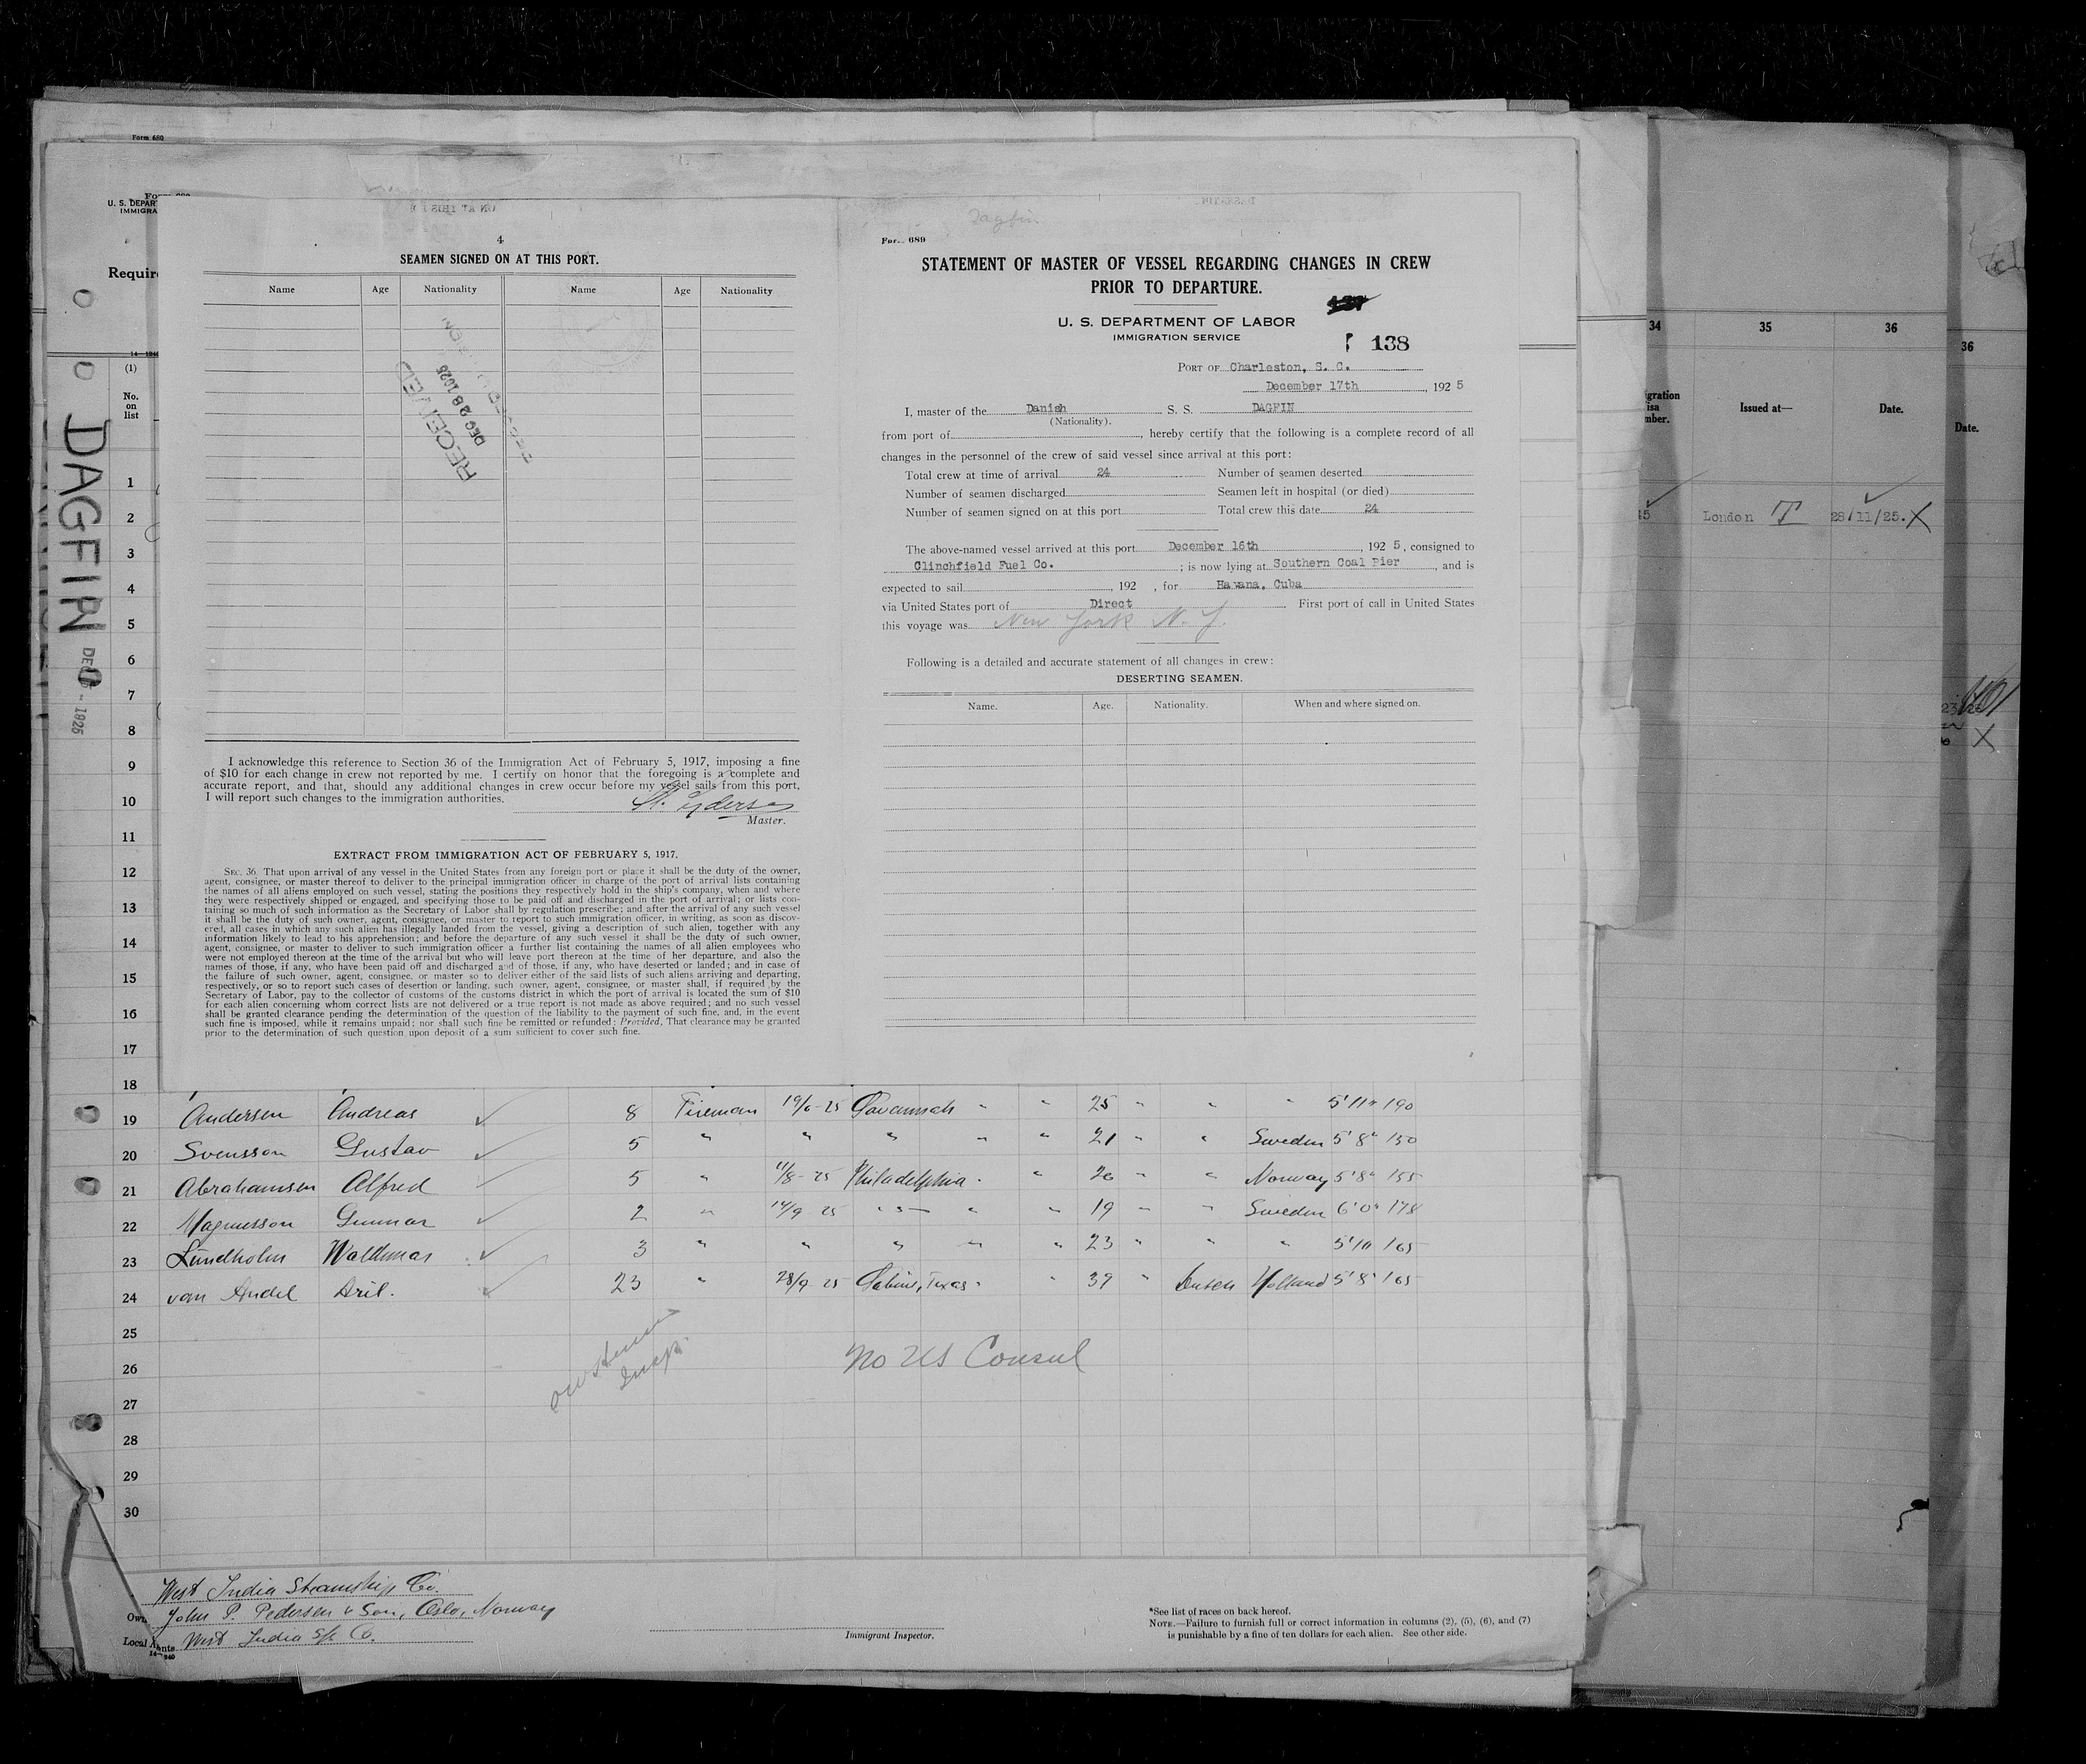 Form 680
U. S. DEPAR
IMMIGRA
Requir
(1)
No.
on
list
DAGFIN
1
2
3
4
5
6
7
8
9
10
11
12
13
14
15
16
17
18
4
SEAMEN SIGNED ON AT THIS PORT.
Name Age Nationality Name Age Nationality
RECEIVED
DEC 28 1925
I acknowledge this reference to Section 36 of the Immigration Act of February 5, 1917, imposing a fine
of $10 for each change in crew not reported by me. I certify on honor that the foregoing is a complete and
accurate report, and that, should any additional changes in crew occur before my vessel sails from this port,
I will report such changes to the immigration authorities.
Master.
EXTRACT FROM IMMIGRATION ACT OF FEBRUARY 5, 1917.
SEC. 36. That upon arrival of any vessel in the United States from any foreign port or place it shall be the duty of the owner,
agent, consignee, or master thereof to deliver to the principal immigration officer in charge of the port of arrival lists containing
the names of all aliens employed on such vessel, stating the positions they respectively hold in the ship's company, when and where
they were respectively shipped or engaged, and specifying those to be paid off and discharged in the port of arrival; or lists con-
taining so much of such information as the Secretary of Labor shall by regulation prescribe; and after the arrival of any such vessel
it shall be the duty of such owner, agent, consignee, or master to report to such immigration officer, in writing, as soon as discov-
ered, all cases in which any such alien has illegally landed from the vessel, giving a description of such alien, together with any
information likely to lead to his apprehension; and before the departure of any such vessel it shall be the duty of such owner,
agent, consignee, or master to deliver to such immigration officer a further list containing the names of all alien employees who
were not employed thereon at the time of the arrival but who will leave port thereon at the time of her departure, and also the
names of those, if any, who have been paid off and discharged and of those, if any, who have deserted or landed; and in case of
the failure of such owner, agent, consignee, or master so to deliver either of the said lists of such aliens arriving and departing,
respectively, or so to report such cases of desertion or landing, such owner, agent, consignee, or master shall, if required by the
Secretary of Labor, pay to the collector of customs of the customs district in which the port of arrival is located the sum of $10
for each alien concerning whom correct lists are not delivered or a true report is not made as above required; and no such vessel
shall be granted clearance pending the determination of the question of the liability to the payment of such fine, and, in the event
such fine is imposed, while it remains unpaid; nor shall such fine be remitted or refunded: Provided, That clearance may be granted
prior to the determination of such question upon deposit of a sum sufficient to cover such fine.
Dagfin
Form 689
STATEMENT OF MASTER OF VESSEL REGARDING CHANGES IN CREW
PRIOR TO DEPARTURE.
U. S. DEPARTMENT OF LABOR
IMMIGRATION SERVICE
138
PORT OF Charleston, S. C.
December 17th, 1925
I, master of the Danish S. S. DAGFIN
(Nationality).
from port of , hereby certify that the following is a complete record of all
changes in the personnel of the crew of said vessel since arrival at this port:
Total crew at time of arrival 24 Number of seamen deserted
Number of seamen discharged Seamen left in hospital (or died)
Number of seamen signed on at this port Total crew this date 24
The above-named vessel arrived at this port December 16th, 1925, consigned to
Clinchfield Fuel Co. ; is now lying at Southern Coal Pier, and is
expected to sail , 192 , for Havana, Cuba
via United States port of Direct. First port of call in United States
this voyage was New York N. Y.
Following is a detailed and accurate statement of all changes in crew:
DESERTING SEAMEN.
Name. Age. Nationality. When and where signed on.
34 35 36
Issued at— Date.
London T 28/11/25. X
36
Date.
19 Andersen Andreas 8 Fireman 19/6-25 Savannah " " 25 " " " 5'11" 190
20 Svensson Gustav 5 " " " " " 21 " " Sweden 5'8" 150
21 Abrahamsen Alfred 5 " 11/8-25 Philadelphia " " 26 " " Norway 5'8" 155
22 Magnusson Gunnar 2 " 14/9 25 " " " 19 " " Sweden 6'0" 178
23 Lundholm Waldemar 3 " " " " " 23 " " " 5'11 165
24 van Andel Aril. 23 " 28/9 25 Sabine, Texas " " 39 " Dutch Holland 5'8" 165
25
26 No US Consul
27
28
29
30
West India Steamship Co.
Own John P. Pedersen & Son, Oslo, Norway
Local Agents West India S/S Co.
Immigrant Inspector.
*See list of races on back hereof.
NOTE.—Failure to furnish full or correct information in columns (2), (5), (6), and (7)
is punishable by a fine of ten dollars for each alien. See other side.